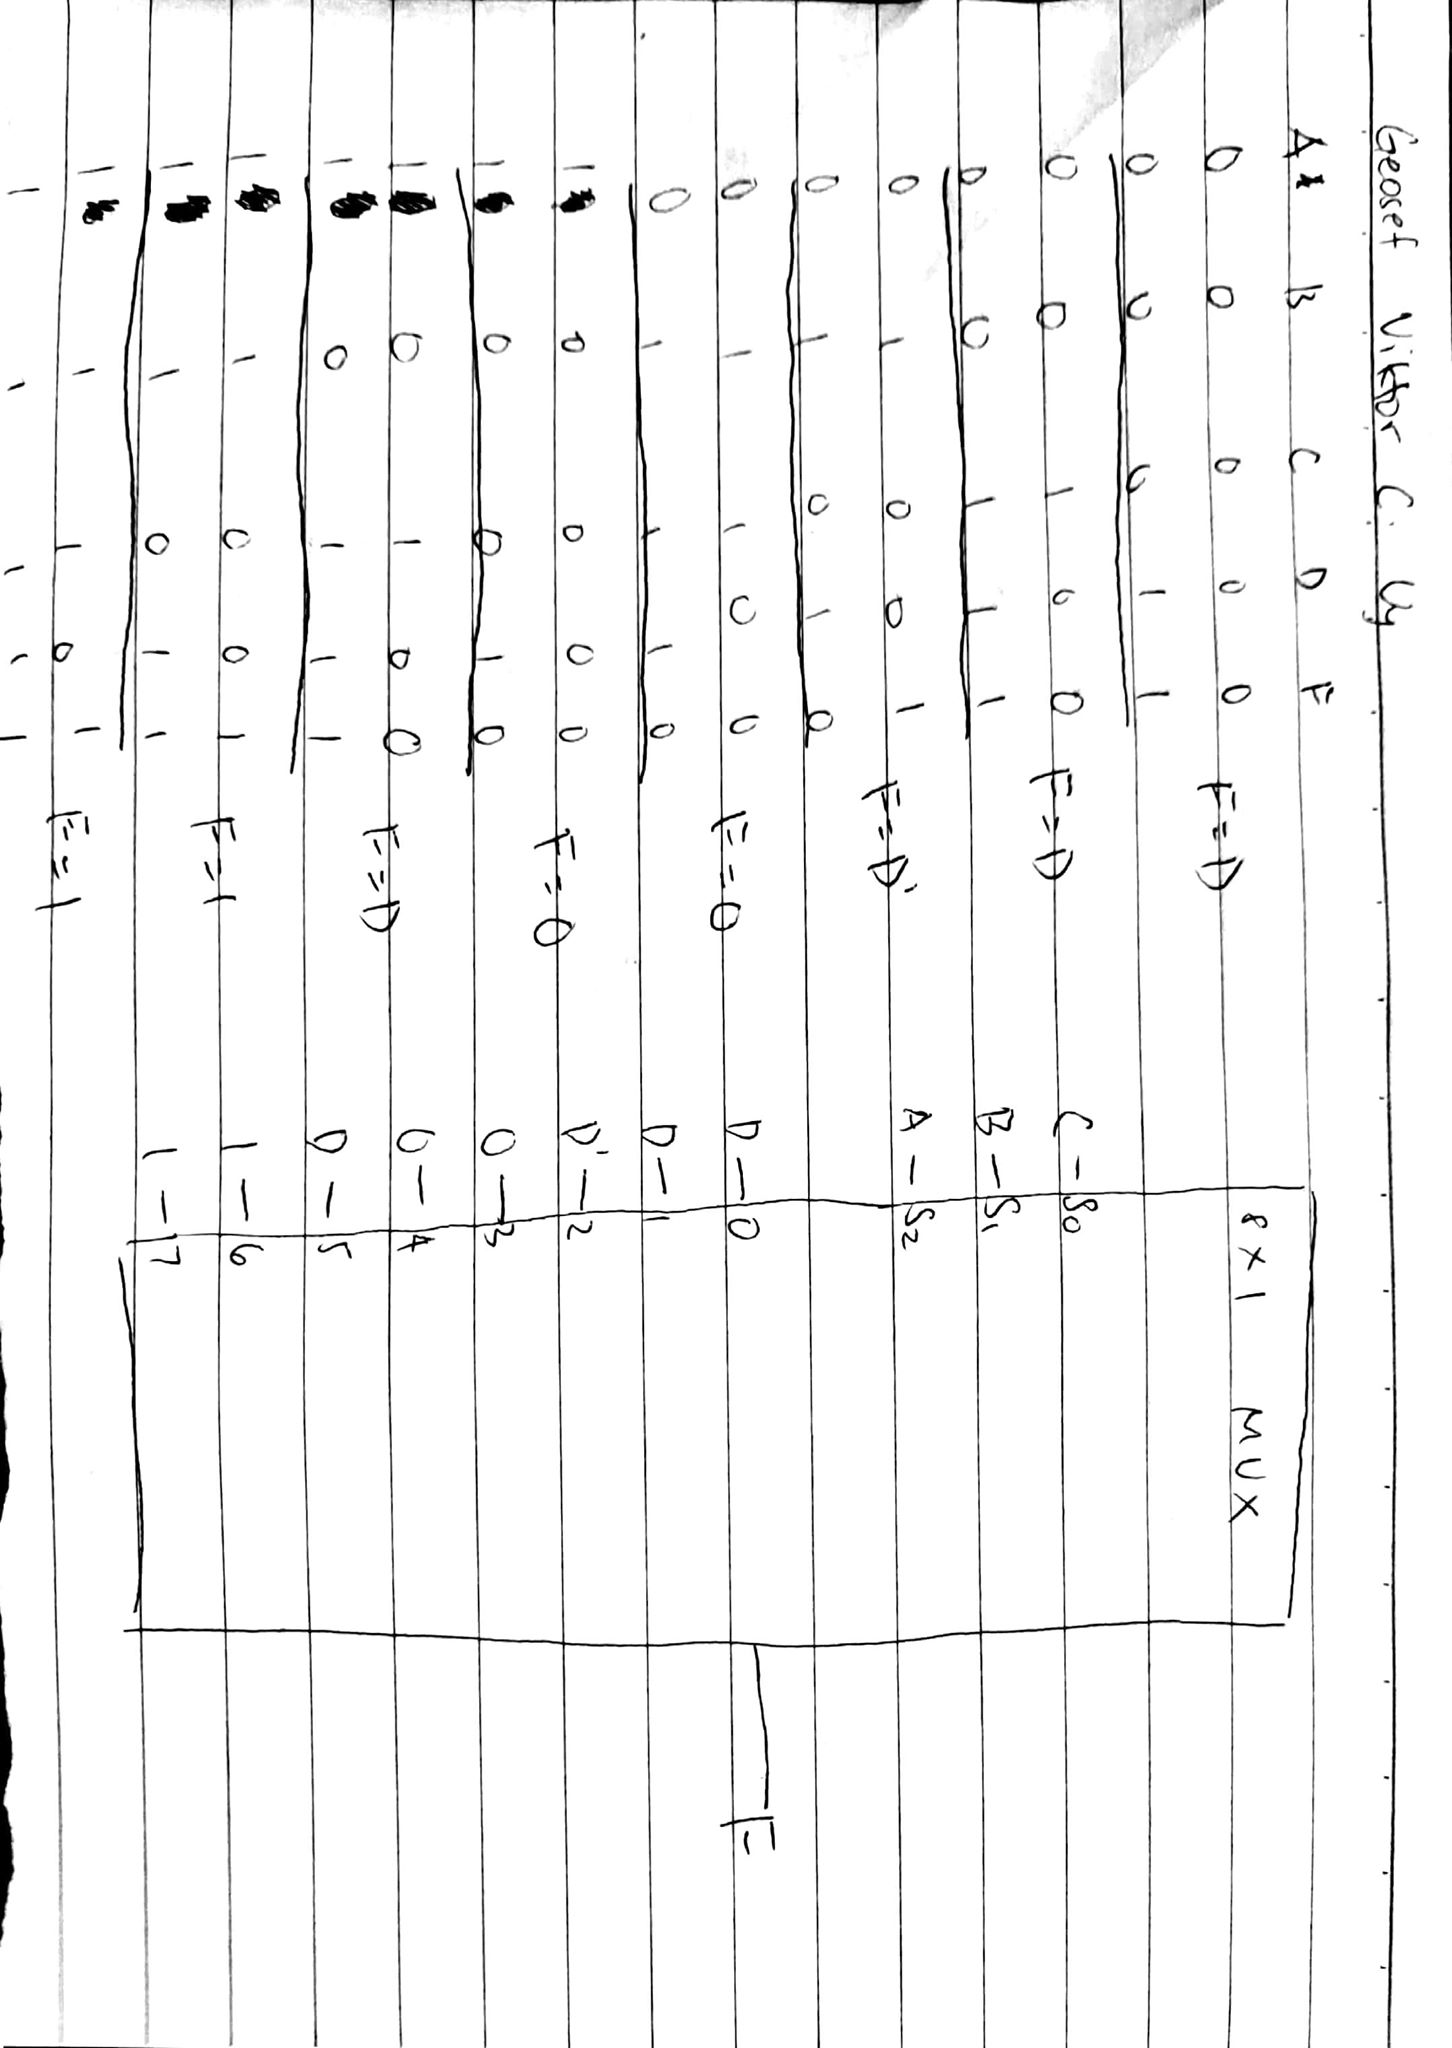 Geosef Viktor C. Uy
A B C D F
0 0 0 0 0 F=D
0 0 0 1 1
0 0 1 0 0 F=D
0 0 1 1 1
0 1 0 0 1 F=D'
0 1 0 1 0
0 1 1 0 0 F=0
0 1 1 1 0
1 0 0 0 0 F=0
1 0 0 1 0
1 0 1 0 0 F=D
1 0 1 1 1
1 1 0 0 1 F=1
1 1 0 1 1
1 1 1 0 1 F=1
1 1 1 1 1
8x1 MUX
C - S0
B - S1
A - S2
D - 0
D - 1
D' - 2
0 - 3
0 - 4
D - 5
1 - 6
1 - 7
F